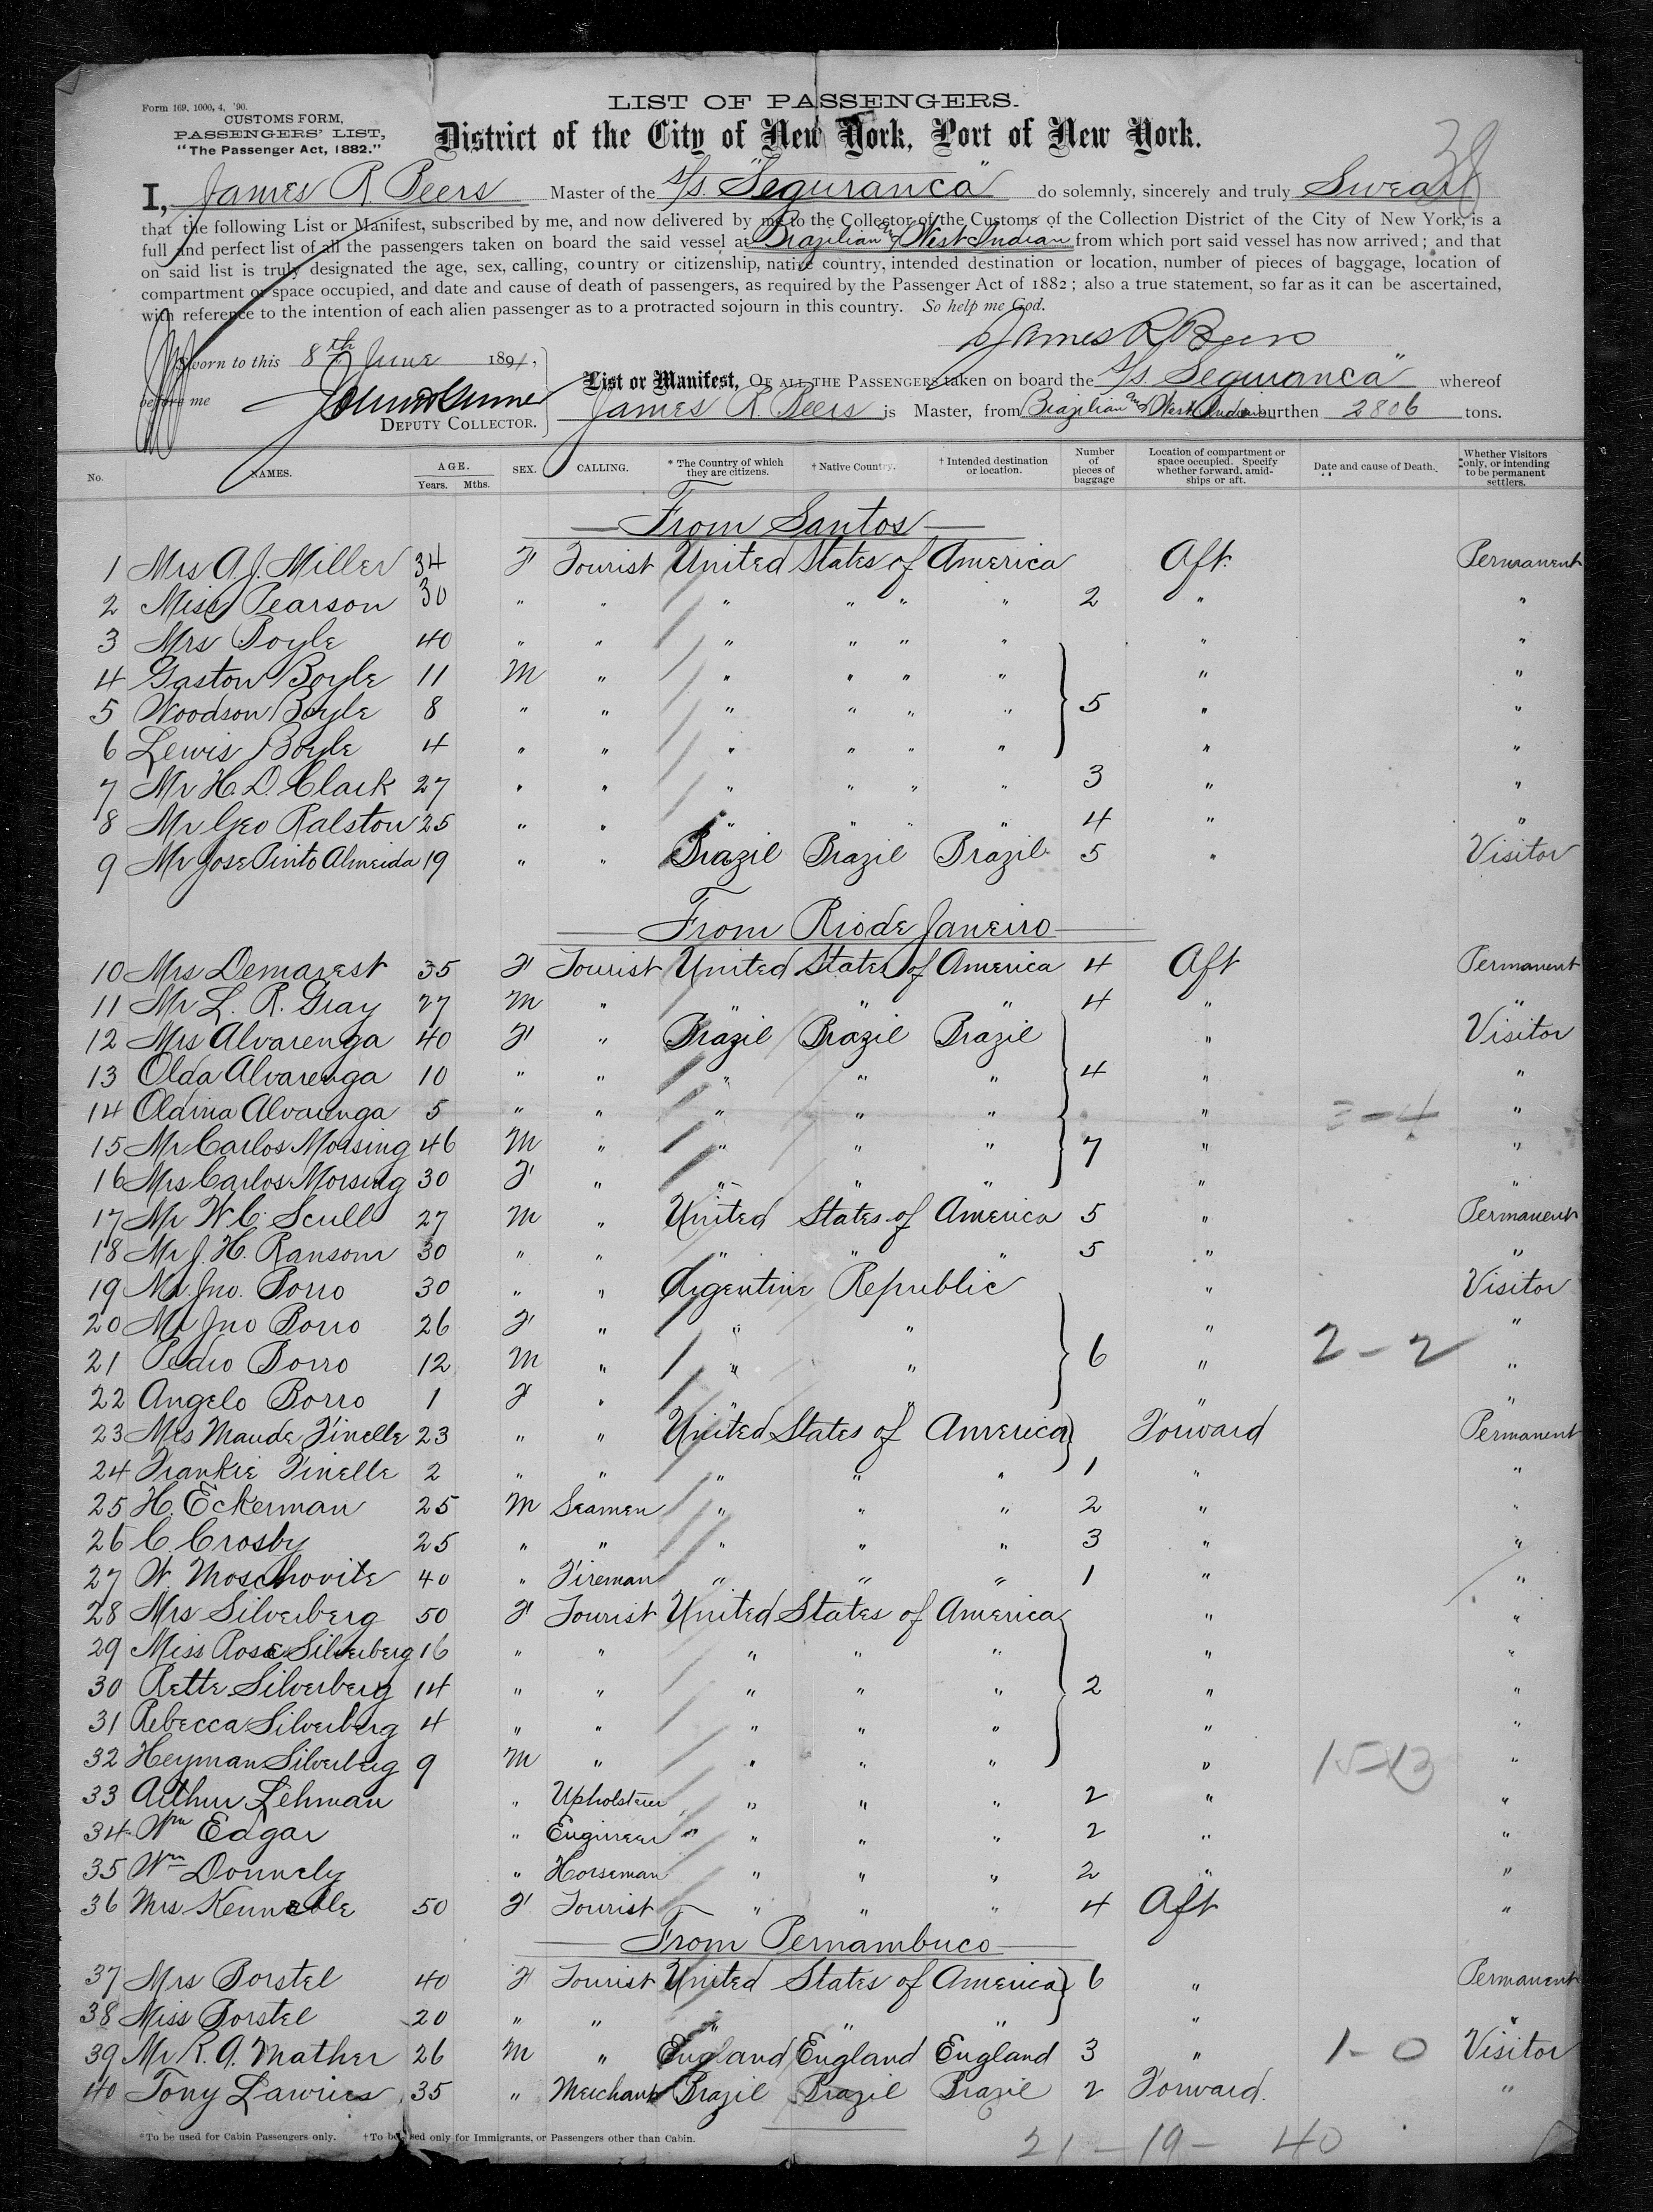 Form 169, 1000, 4, '90.
CUSTOMS FORM,
PASSENGERS' LIST,
"The Passenger Act, 1882."
LIST OF PASSENGERS.
District of the City of New York, Port of New York.
38
I, James R Beers Master of the S/S. "Seguranca" do solemnly, sincerely and truly Swear
that the following List or Manifest, subscribed by me, and now delivered by me to the Collector of the Customs of the Collection District of the City of New York, is a
full and perfect list of all the passengers taken on board the said vessel at Brazilian and West Indian from which port said vessel has now arrived; and that
on said list is truly designated the age, sex, calling, country or citizenship, native country, intended destination or location, number of pieces of baggage, location of
compartment or space occupied, and date and cause of death of passengers, as required by the Passenger Act of 1882; also a true statement, so far as it can be ascertained,
with reference to the intention of each alien passenger as to a protracted sojourn in this country. So help me God.
James R Beers
Sworn to this 8th June 1891,
before me
DEPUTY COLLECTOR.
List or Manifest, OF ALL THE PASSENGERS taken on board the S/S. Seguranca" whereof
James R. Beers is Master, from Brazilian and West Indian burthen 2806 tons.
No. NAMES. AGE. Years. Mths. SEX. CALLING. * The Country of which they are citizens. † Native Country. † Intended destination or location. Number of pieces of baggage Location of compartment or space occupied. Specify whether forward, amidships or aft. Date and cause of Death. Whether Visitors only, or intending to be permanent settlers.
From Santos
1 Mrs A. J. Miller 34 F Tourist United States of America Aft. Permanent
2 Miss Pearson 30 " " " " " " 2 " "
3 Mrs Boyle 40 " " " " " " " "
4 Gaston Boyle 11 M " " " " " " "
5 Woodson Boyle 8 " " " " " " 5 " "
6 Lewis Boyle 4 " " " " " " " "
7 Mr H. D. Clark 27 " " " " " " 3 " "
8 Mr Geo Ralston 25 " " " " " " 4 " "
9 Mr Jose Pinto Almeida 19 " " Brazil Brazil Brazil 5 " Visitor
From Rio de Janeiro
10 Mrs Demarest 35 F Tourist United States of America 4 Aft Permanent
11 Mr L. R. Gray 27 M " " " " 4 " "
12 Mrs Alvarenga 40 F " Brazil Brazil Brazil " Visitor
13 Olda Alvarenga 10 " " " " " 4 " "
14 Oldina Alvarenga 5 " " " " " " 3-4 "
15 Mr Carlos Morsing 46 M " " " " 7 " "
16 Mrs Carlos Morsing 30 F " " " " " "
17 Mr W. C. Scull 27 M " United States of America 5 " Permanent
18 Mr J. H. Ransom 30 " " " " " 5 " "
19 Mr. Jno. Borro 30 " " Argentine Republic " Visitor
20 Mr Jno Borro 26 F " " " " "
21 Pedro Borro 12 M " " " 6 " 2-2 "
22 Angelo Borro 1 F " " " " "
23 Mrs Maude Finelle 23 " " United States of America Forward Permanent
24 Frankie Finelle 2 " " " " " 1 " "
25 H. Eckerman 25 M Seamen " " " 2 " "
26 C. Crosby 25 " " " " " 3 " "
27 W. Moschovite 40 " Fireman " " " 1 " "
28 Mrs Silverberg 50 F Tourist United States of America " "
29 Miss Rosa Silverberg 16 " " " " " " "
30 Rette Silverberg 14 " " " " " 2 " "
31 Rebecca Silverberg 4 " " " " " " "
32 Heyman Silverberg 9 M " " " " " 15-13 "
33 Arthur Lehman " Upholsterer " " " 2 " "
34 Wm Edgar " Engineer " " " " 2 " "
35 Wm Donnely " Horseman " " " 2 " "
36 Mrs Kennelle 50 F Tourist " " " 4 Aft "
From Pernambuco
37 Mrs Borstel 40 F Tourist United States of America 6 " Permanent
38 Miss Borstel 20 " " " " " " "
39 Mr R. A. Mather 26 M " England England England 3 " 1-0 Visitor
40 Tony Lawries 35 " Merchant Brazil Brazil Brazil 2 Forward. "
*To be used for Cabin Passengers only. †To be used only for Immigrants, or Passengers other than Cabin.
21-19- 40